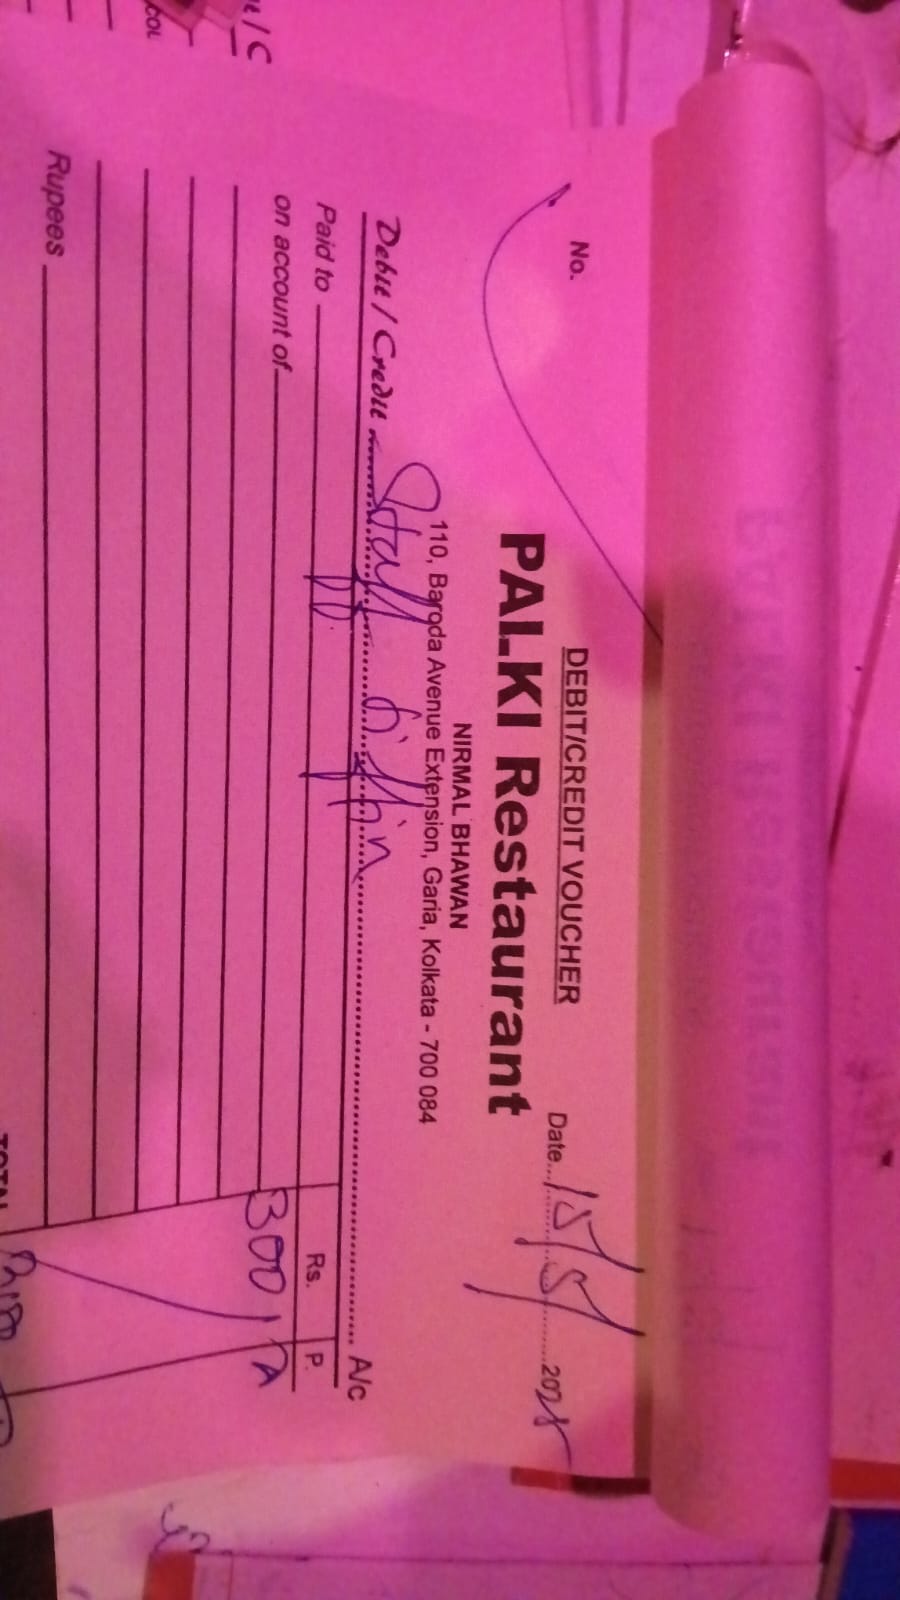 DEBIT/CREDIT VOUCHER
No.
Date 15/5/ 2025
PALKI Restaurant
NIRMAL BHAWAN
110, Baroda Avenue Extension, Garia, Kolkata - 700 084
Debit / Credit Staff tiffin A/c
Paid to Rs. P.
on account of 300
Rupees
TOTAL